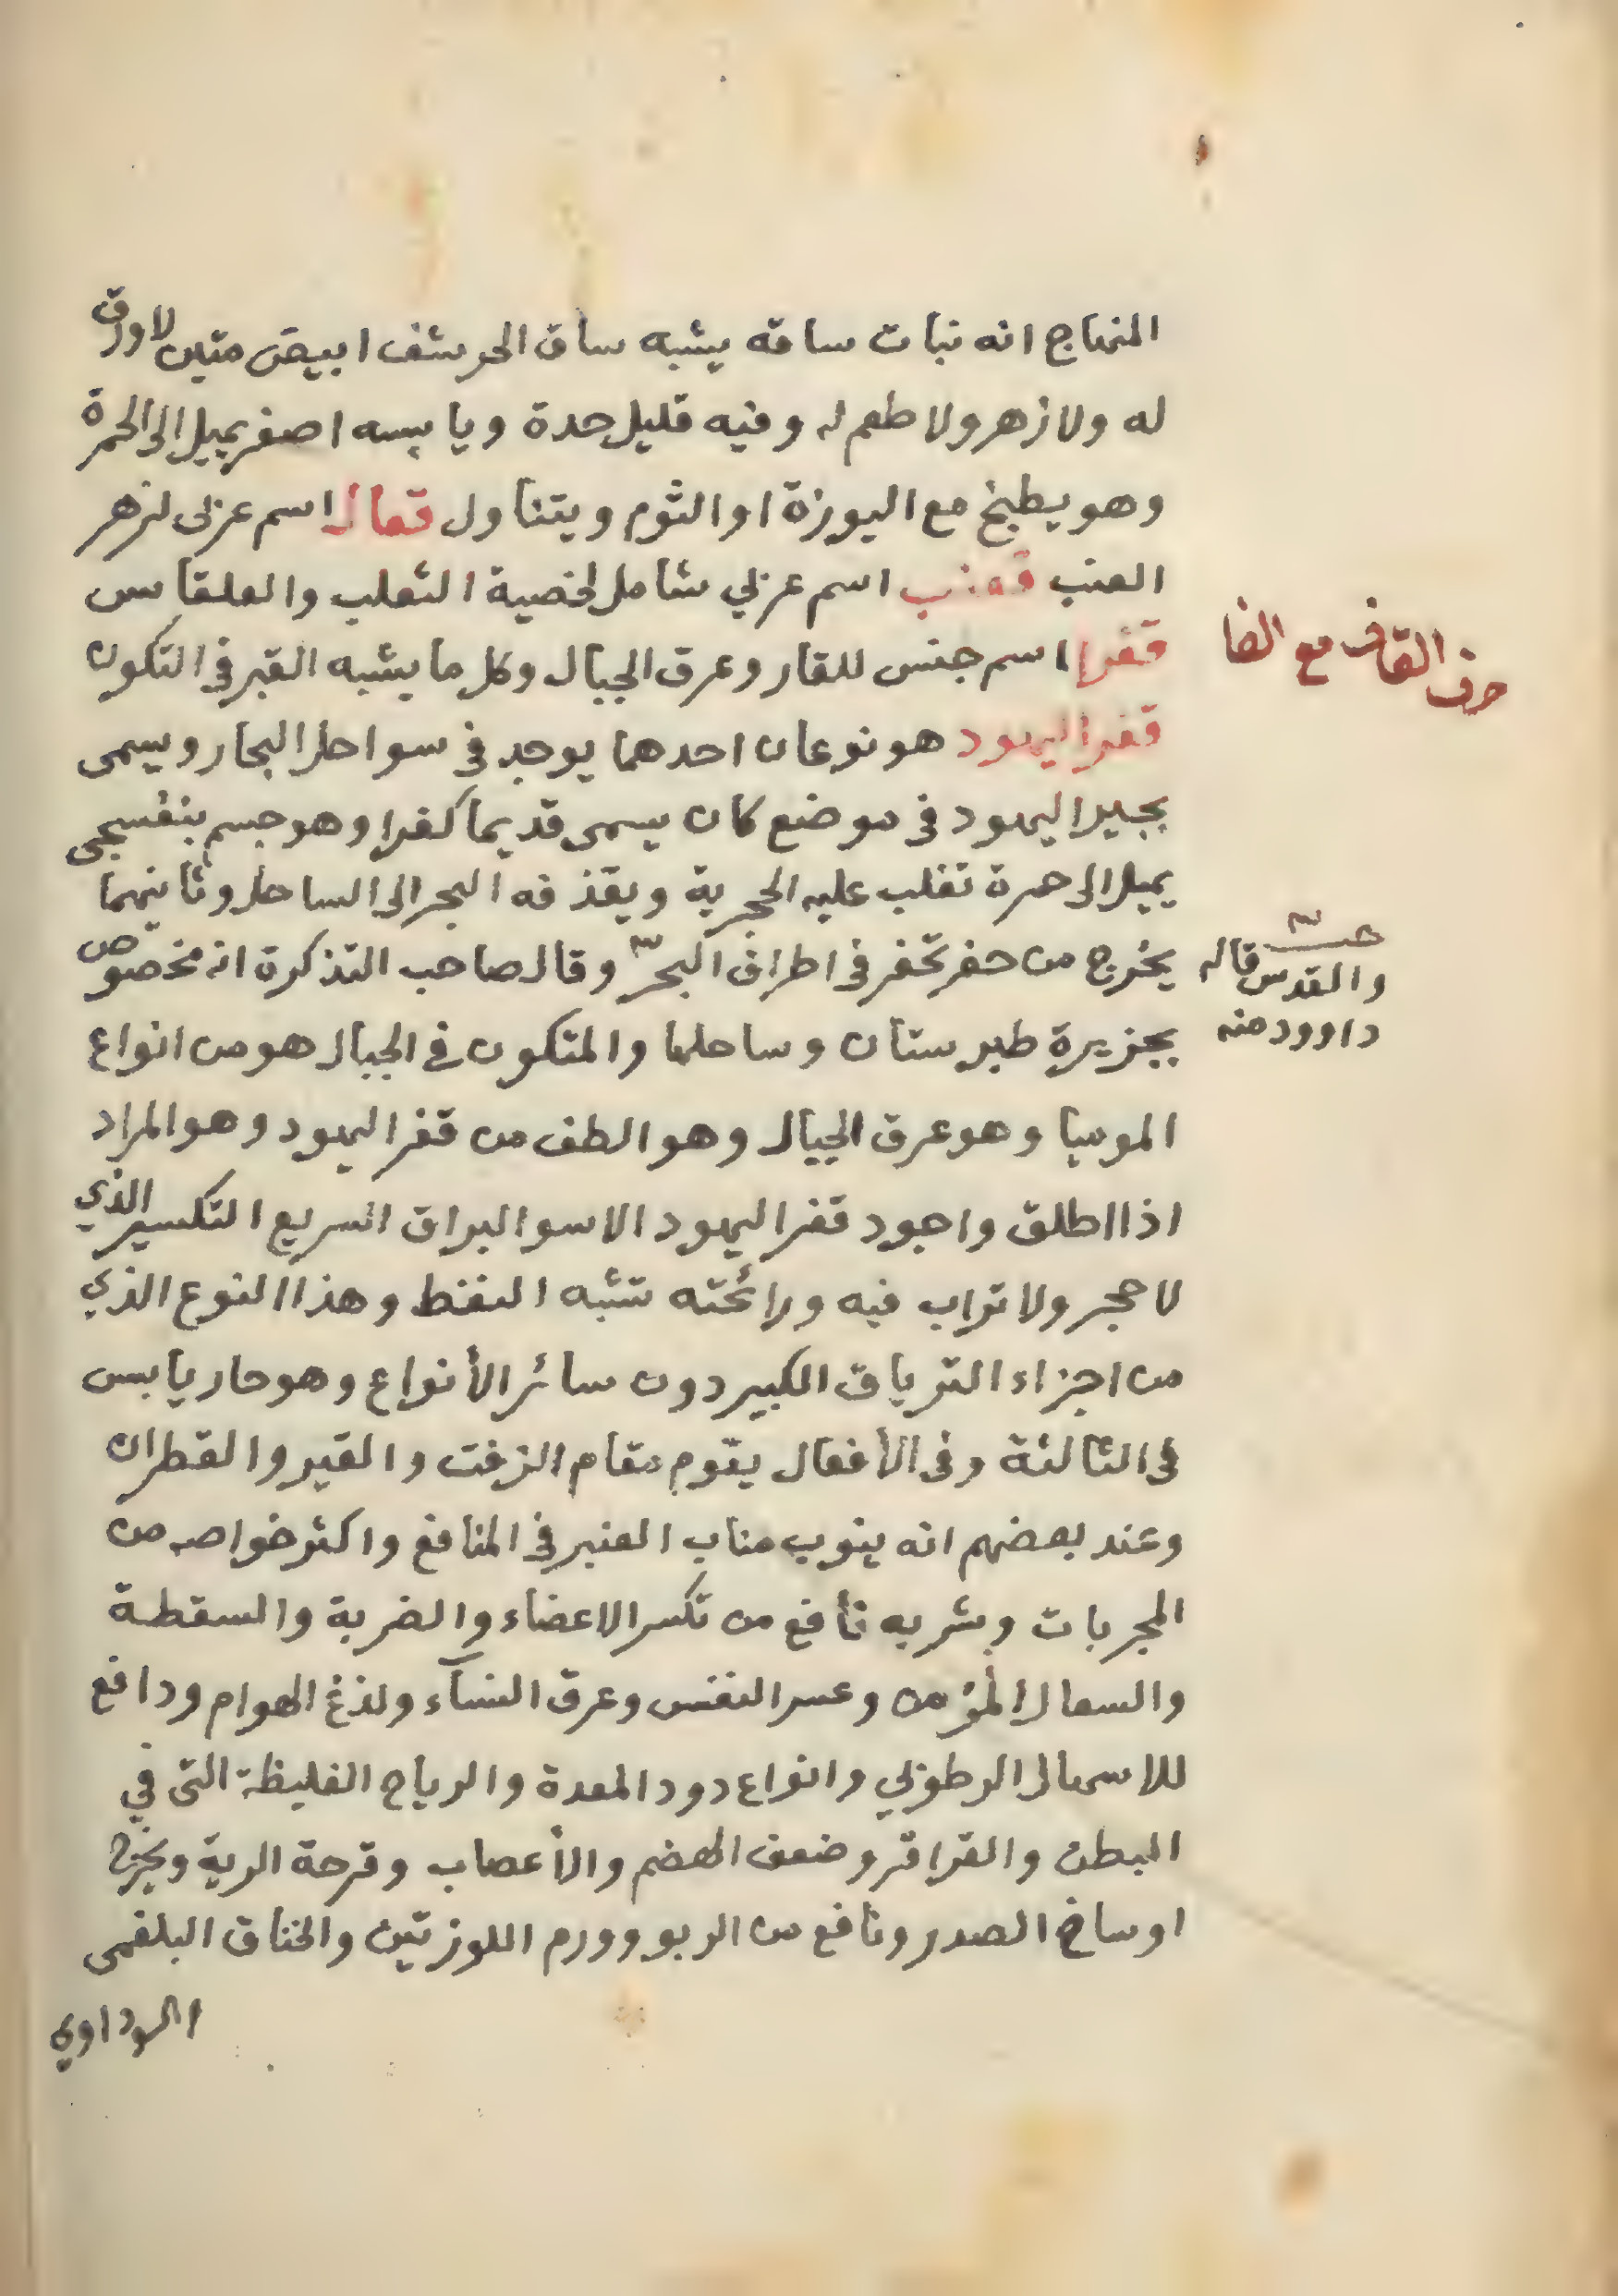 المنهاج انه نبات ساقه يشبه ساق الحرشف ابيض متين لا ورق
له ولا زهر ولا طعم له وفيه قليل حدة ويابسه اصفر يميل الى الحمرة
وهو يطبخ مع اليورزة او الثوم ويتناول قعال اسم عربى لزهر
العنب قعنب اسم عربي شامل لخصية الثعلب والعلقاس
حرف القاف مع الفا
قفرا اسم جنس للقار وعرق الجبال وكل ما يشبه القير فى التكون
قفر اليهود هو نوعان احدهما يوجد فى سواحل البحار ويسمى
بجير اليهود فى موضع كان يسمى قديما كفرا وهو جسم بنفسجى
يميل الى حمرة تغلب عليه الحجرية ويقذفه البحر الى الساحل وثانيهما
يخرج من حفر تحفر فى اطراف البحر وقال صاحب التذكرة انه مخصوص
والقدس قاله
داوود منه
بجزيرة طبرستان وساحلها والمتكون فى الجبال هو من انواع
الموميا وهو عرق الجبال وهو الطف من قفر اليهود وهو المراد
اذا اطلق واجود قفر اليهود الاسو البراق السريع التكسير الذي
لا حجر ولا تراب فيه ورائحته تشبه النفط وهذا النوع الذي
من اجزاء الترياق الكبير دون سائر الأنواع وهو حار يابس
فى الثالثة وفى الأفعال يقوم مقام الزفت والقير والقطران
وعند بعضهم انه ينوب مناب العنبر فى المنافع واكثر خواصه من
المجربات وشربه نافع من تكسر الاعضاء والضربة والسقطة
والسعال المزمن وعسر النفس وعرق النسآء ولذغ الهوام ودافع
للاسهال الرطوبي وانواع دود المعدة والرياح الغليظة التى في
البطن والقراقر وضعف الهضم والأعصاب وقرحة الرية ويخرج
اوساخ الصدر ونافع من الربو وورم اللوزتين والخناق البلغمى